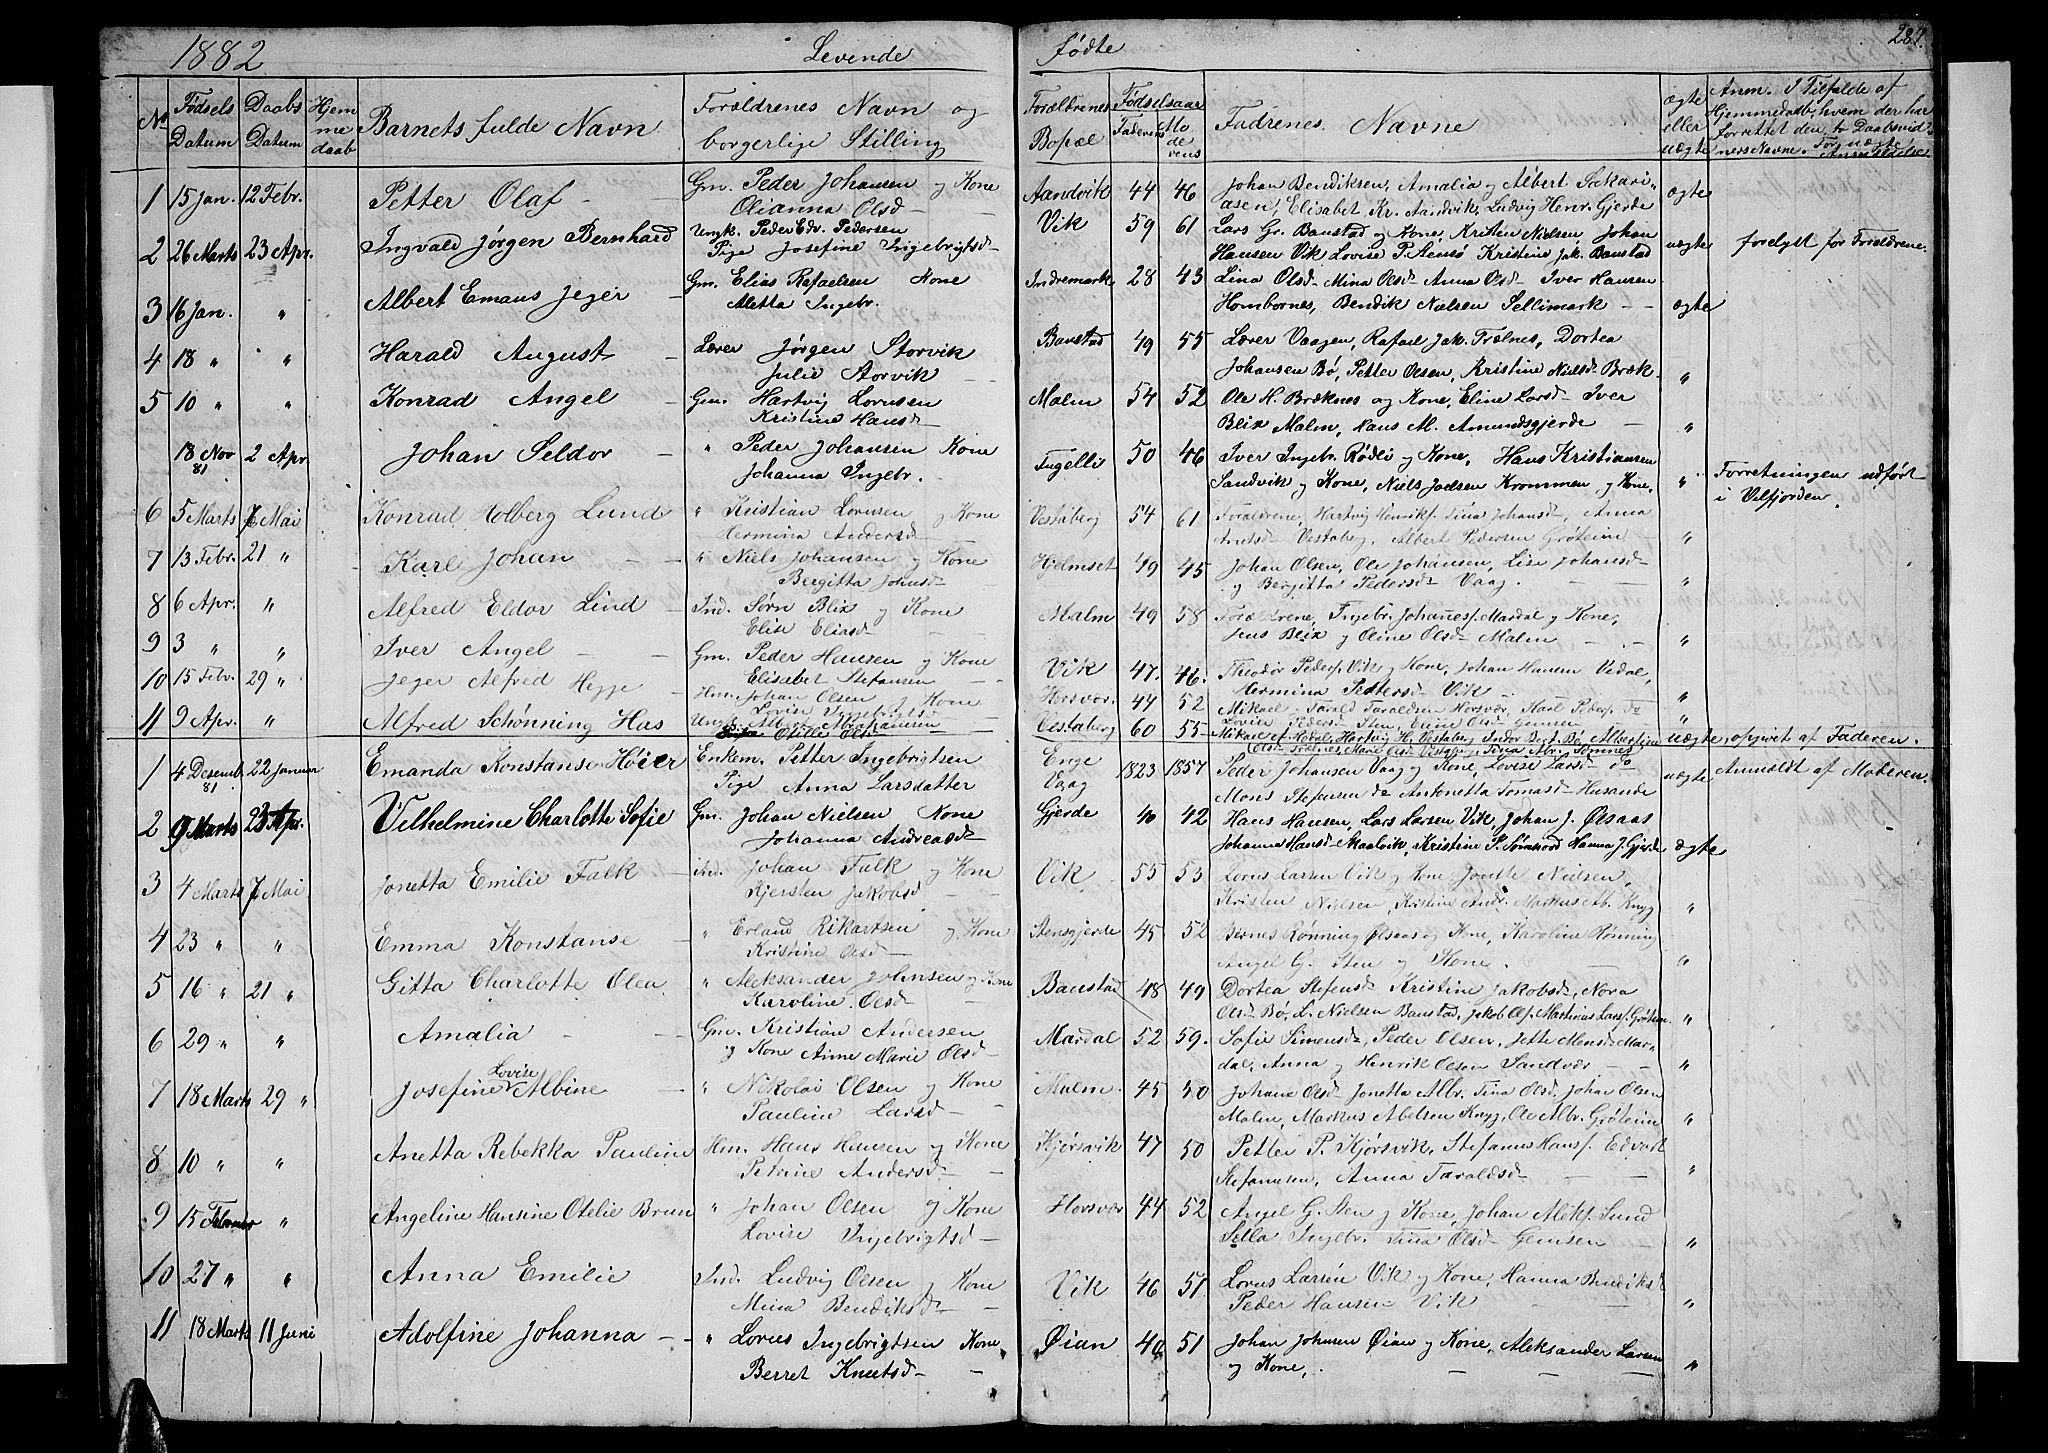 1882 Levende fødte 287.
No Fødsels Datum Daabs Datum Hjemmedaab Barnets fulde Navn Forældrenes Navn og borgerlige Stilling Forældrenes Bopæl Fødselsaar Faderens Moderens Fadrenes Navne ægte eller uægte Anm. I Tilfælde af Hjemmedaab, hvem der har forrettet den, to Daabsvidners Navne. For uægte Anmeldelse
1 15 Jan. 12 Febr. Petter Olaf Gm. Peder Johansen og Kone Aandvik 44 46 Johan Bendiksen, Amalia og Albert Sakari-
Olianna Olsd asen, Elisabet Kr. Aandvik, Ludvig Henr. Gjerde ægte
2 26 Marts 23 Apr. Ingvald Jørgen Bernhard Ungk. Peder Edv. Pedersen Vik 59 61 Lars Gr. Baustad og Kone Kristen Nielsen Johan
Pige Josefine Ingebrigtsd Hansen Vik Lovise P. Stensø Kristine Jak. Baustad uægte forelyst for Forældrene.
3 16 Jan. " Albert Emaus Jeger Gm. Elias Rafaelsen Kone Indremark 28 43 Lina Olsd Mina Olsd Anna Olsd Iver Hansen
Aletta Ingebr. Hombornes, Bendik Nielsen Sellimark ægte
4 18 " " Harald August Lærer Jørgen Storvik Baustad 49 55 Lærer Vaagen, Rafael Jak. Trælnes, Dortea
Julie Storvik Johansen Bø, Petter Olsen, Kristine Nielsd Bræk. "
5 10 " " Konrad Angel Gm. Hartvig Lornsen Malm 54 52 Ole H. Bræknes og Kone, Eline Larsd Iver
Kristine Hansd Blix Malm, Hans M. Amundsgjerde "
18 Nov 81 2 Apr. Johan Seldor " Peder Johansen Kone Tugelli 50 46 Iver Ingebr. Rødli og Kone, Hans Kristiansen
Johanna Ingebr. Sandvik og Kone, Niels Jadsen Krommen og Kone, " Forretningen udført i Velfjorden.
6 5 Marts 7 Mai Konrad Holberg Lund " Kristian Lornsen og Kone Vestaberg 54 61 Forældrene, Hartvig Henriks. Tina Johansd, Anna
Hermina Andersd Arntsd Vestaberg, Albert Pedersen Grøteim "
7 13 Febr. 21 " Karl Johan " Niels Johansen og Kone Hjelmset 49 45 Johan Olsen, Ole Johansen, Lise Johansd
Bergitta Johnsd og Bergitta Pedersd Vaag. "
8 6 Apr. " Alfred Eldor Lind Ind. Sørn Blix og Kone Malm 49 58 Forældrene, Ingebr. Johannes. Mardal og Kone,
Elise Eliasd Jens Blix og Oline Olsd Malm "
9 3 " " Iver Angel Gm. Peder Hansen og Kone Vik 47. 46. Theodor Peders. Vik og Kone, Johan Hansen Vedal,
Elisabet Stefansen Hermina Pettersd Vik "
10 15 Febr. 29 " Jeger Alfred Hegge Hm. Johan Olsen Kone Horsvær. 44 52 Mikael og Tarald Taraldsen Horsvær, Karl Peders. do
Lovise Ingebrigtsd Lovise Pedersd Sten, Eline Olsd Gimsen "
11 9 Apr. " Alfred Schønning Has Ungk. Albert Abrahamsen Vestaberg 60 55 Mikael A. Hodal, Hartvig H. Vestaberg Indor Bert. Bø, Albertine
Otilie Olsd Olsd Trælnes, Marie Olsd Vestaberg, Tina Alb. Tomnes uægte, opgivet af Faderen.
1 4 Desemb. 81 22 Januar Emanda Konstanse Høier Enkem. Petter Ingebrigtsen Enge Vaag 1823 1857 Peder Johansen Vaag og Kone, Lovise Larsd do
Pige Anna Larsdatter Mons Stefensen do Antonetta Tomasd Husande uægte Anmeldt af Moderen.
2 9 Marts 23 Apr. Vilhelmine Charlotte Sofie Gm. Johan Nielsen Kone Gjerde 40 42 Hans Hansen, Lars Larsen Vik, Johan J. Øisaas
Johanna Andreasd Johanna Hansd Skaalvik, Kristine P. Sømhovd Hanna J. Gjerde ægte
3 4 Marts 7 Mai Jonetta Emilie Falk Ind. Johan Falk og Kone Vik 55 53 Lorns Larsen Vik og Kone Jonette Nielsen,
Kjersten Jakobsd Kristen Nielsen, Kristine Andr. Markus Ab. Knyg "
4 23 " " Emma Konstanse " Erland Rikartsen og Kone Stensgjerde 45 52 Bernes Rønning Øisaas og Kone, Karoline Rønning
Kristine Olsd Angel G. Sten og Kone. "
5 16 " 21 " Gitta Charlotte Olea " Aleksander Johnsen og Kone Baustad 48 49 Dortea Stefensd Kristine Jakobsd, Nora
Karoline Olsd Olsd Bø, L. Nielsen Baustad, Jakob Ols. Martinus Lars. Grøteim "
6 29 " " Amalia Gm. Kristian Andersen Mardal 52 59. Sofie Simensd, Peder Olsen, Jette Monsd Mar-
og Kone Anne Marie Olsd dal, Anna og Henrik Olsen Sandvær "
7 18 Marts 29 " Josefine Lovise Albine " Nikolai Olsen og Kone Malm. 45 50 Johana Olsd Jonetta Albr. Tina Olsd Johan Olsen
Pauline Larsd Malm, Markus Abelsen Knyg, Ole Albr. Grøteim "
8 10 " " Anetta Rebekka Pauline Hm. Hans Hansen og Kone Kjørsvik 47 50 Petter P. Kjørsvik, Stefanus Hans. Edvart
Petrine Andersd Stefansen, Anna Taraldsd "
9 15 Febr " Angeline Hansine Otelie Brun " Johan Olsen og Kone Horsvær 44 52 Angel G. Sten og Kone, Johan Aleks. Sund
Lovise Ingebrigtsd Sella Ingebr. Tina Olsd Gimsen "
10 27 " " Anna Emilie Ind. Ludvig Olsen og Kone Vik 46 51. Lorns Larsen Vik og Kone, Hanna Bendiksd
Mina Bendiksd Peder Hansen Vik "
11 18 Marts 11 Juni Adolfine Johanna " Lorns Ingebrigtsen Kone, Øian 40 51 Johan Johnsen Øian og Kone, Aleksander Larsen
Berret Knutsd og Kone, "